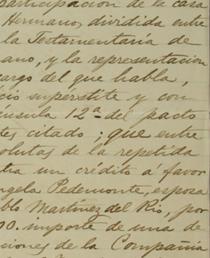 participacion de la casa
Hermanos, dividida entre
la Testamentaría de
ano, y la representacion
argo del que habla,
cio supérstite y con
usula 12ª del pacto
tes citado; que entre
olutas de la repetida
tra un crédito a favor
ngela Pedemonte, esposa
blo Martinez del Rio, por
00. importe de una de
siones de la Compañía